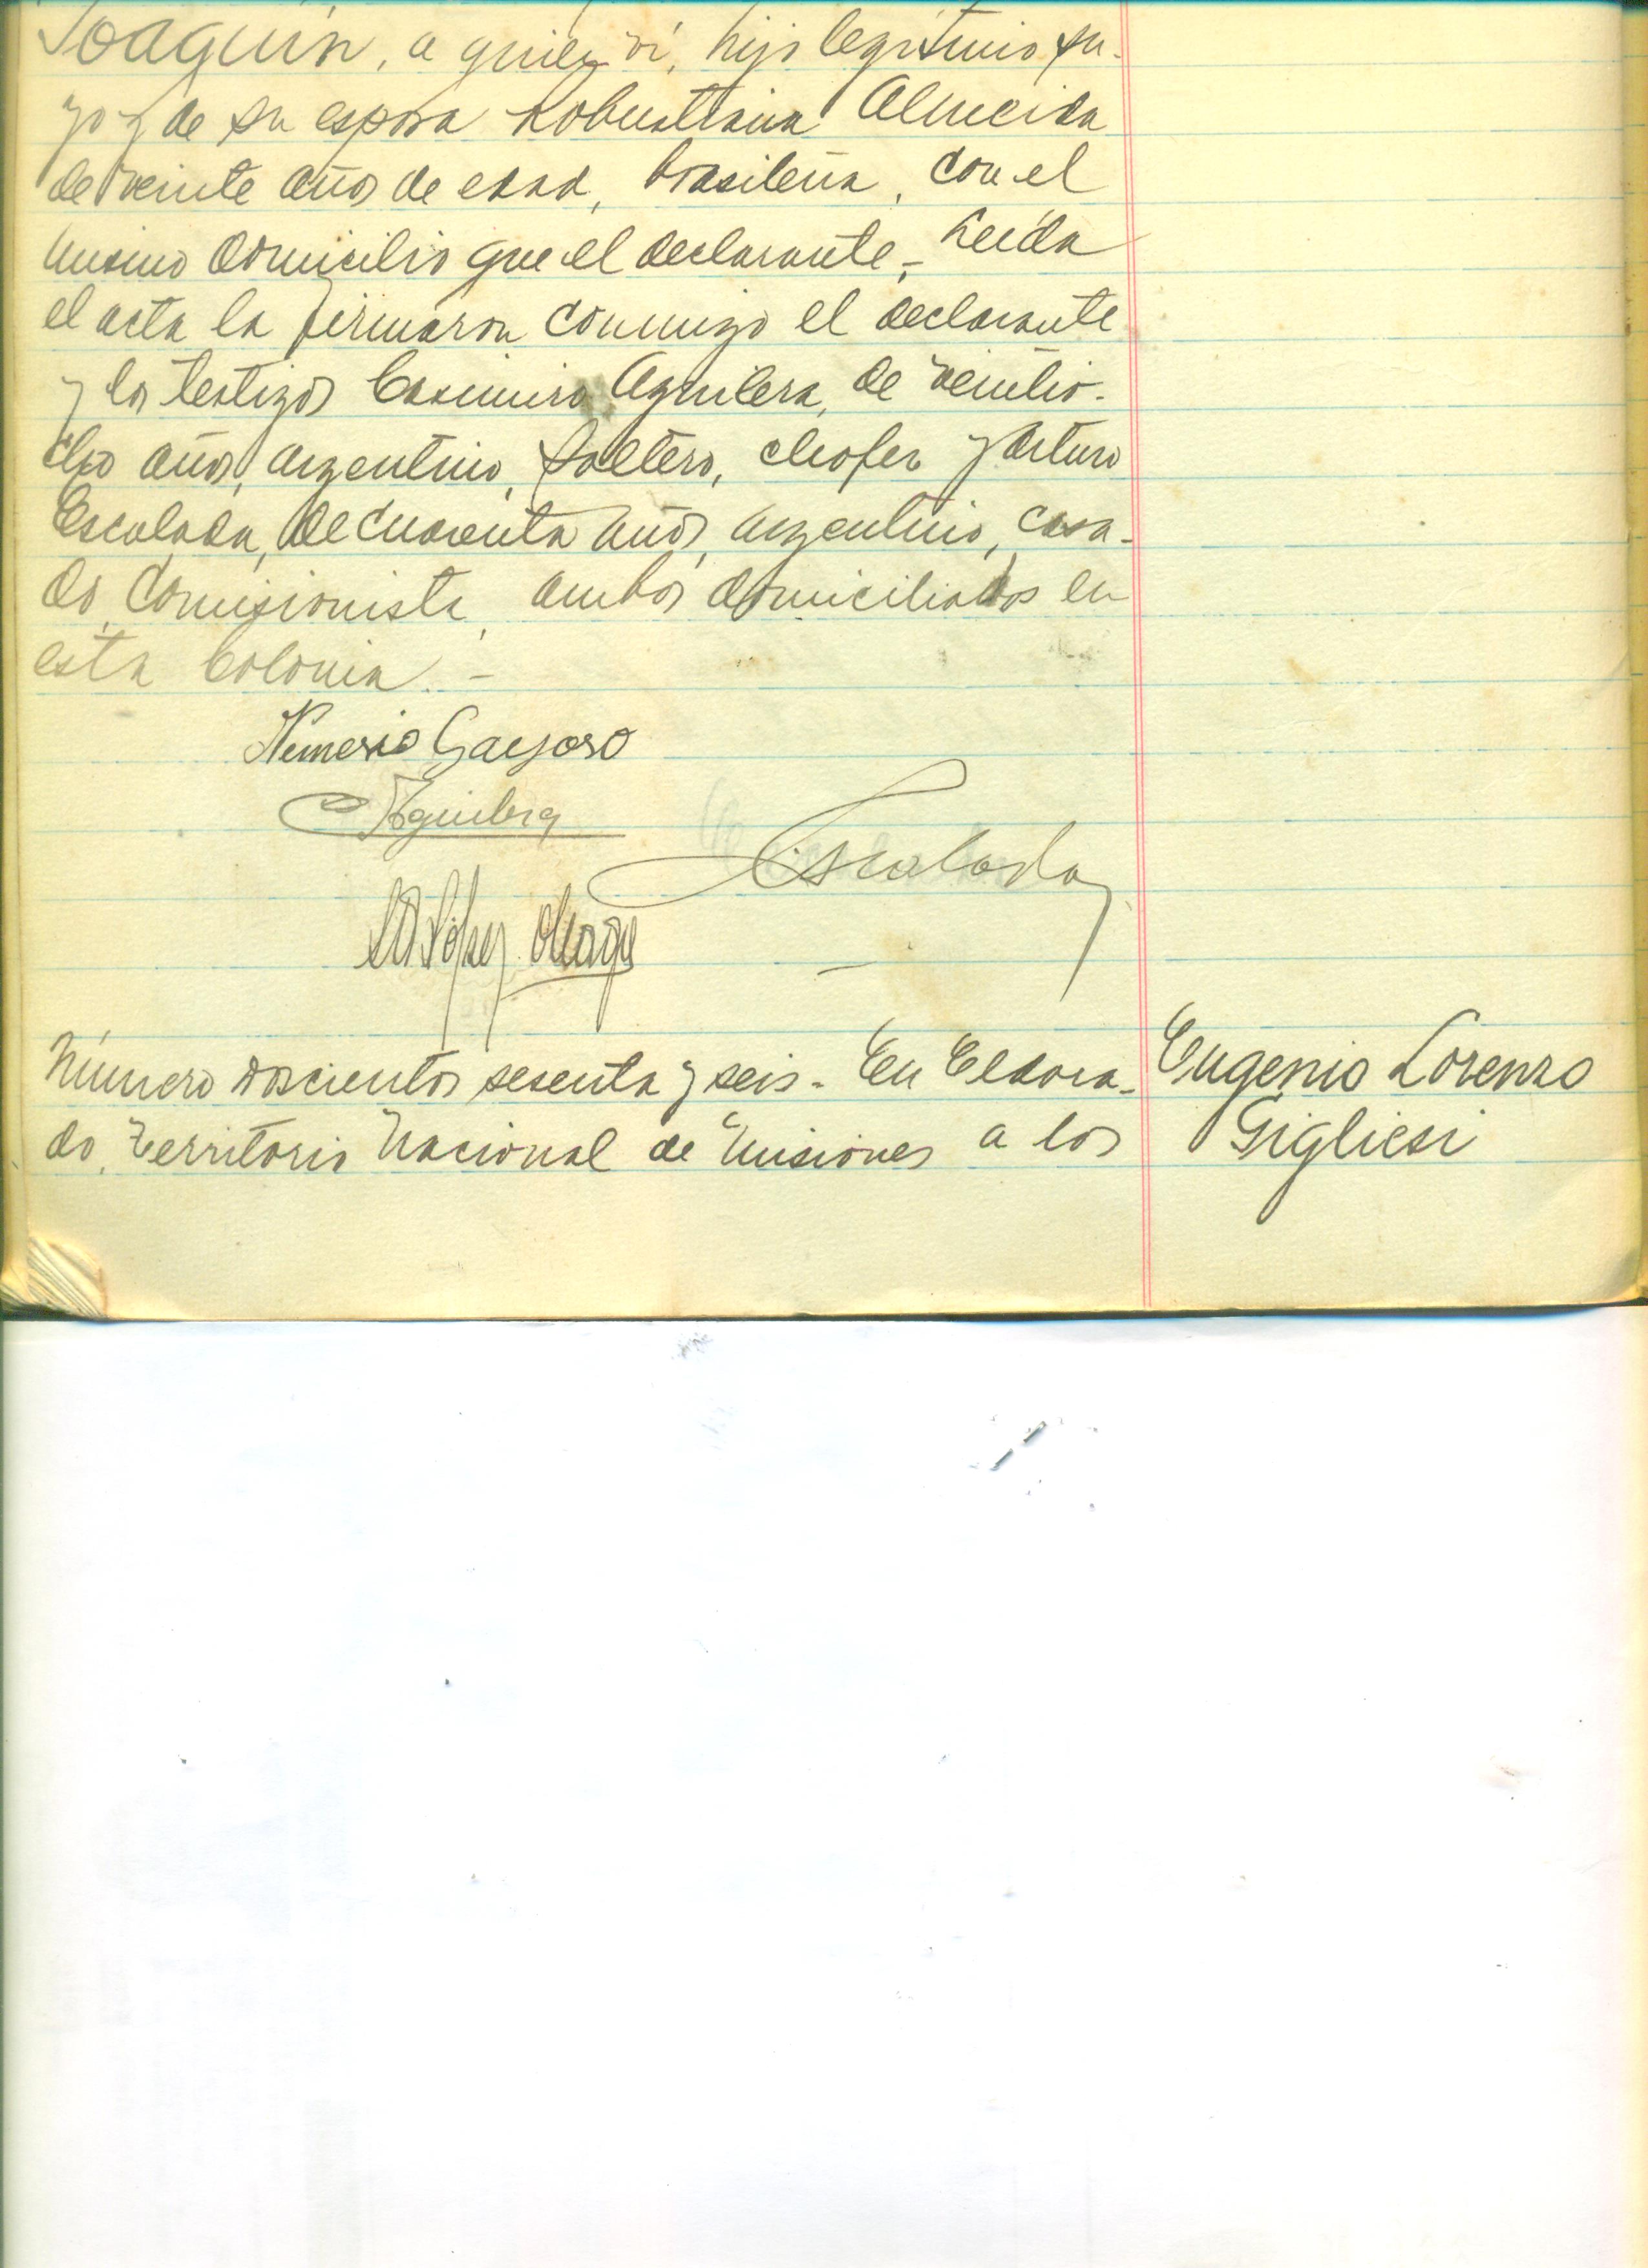 Joaquín, a quien ví, hijo legítimo su-
yo y de su esposa Robustiana Almeida
de veinte años de edad, brasileña, con el
mismo domicilio que el declarante.- Leída
el acta la firmaron conmigo el declarante
y los testigos Casimiro Aguilera, de veintio-
cho años, argentino, soltero, chofer y Arturo
Escalada, de cuarenta años, argentino, casa-
do, comisionista, ambos domiciliados en
esta Colonia.-
Nemesio Gayoso
Aguilera
Escalada
López
Número doscientos sesenta y seis.- En Eldora-
do, Territorio Nacional de Misiones a los
Eugenio Lorenzo
Gigliesi